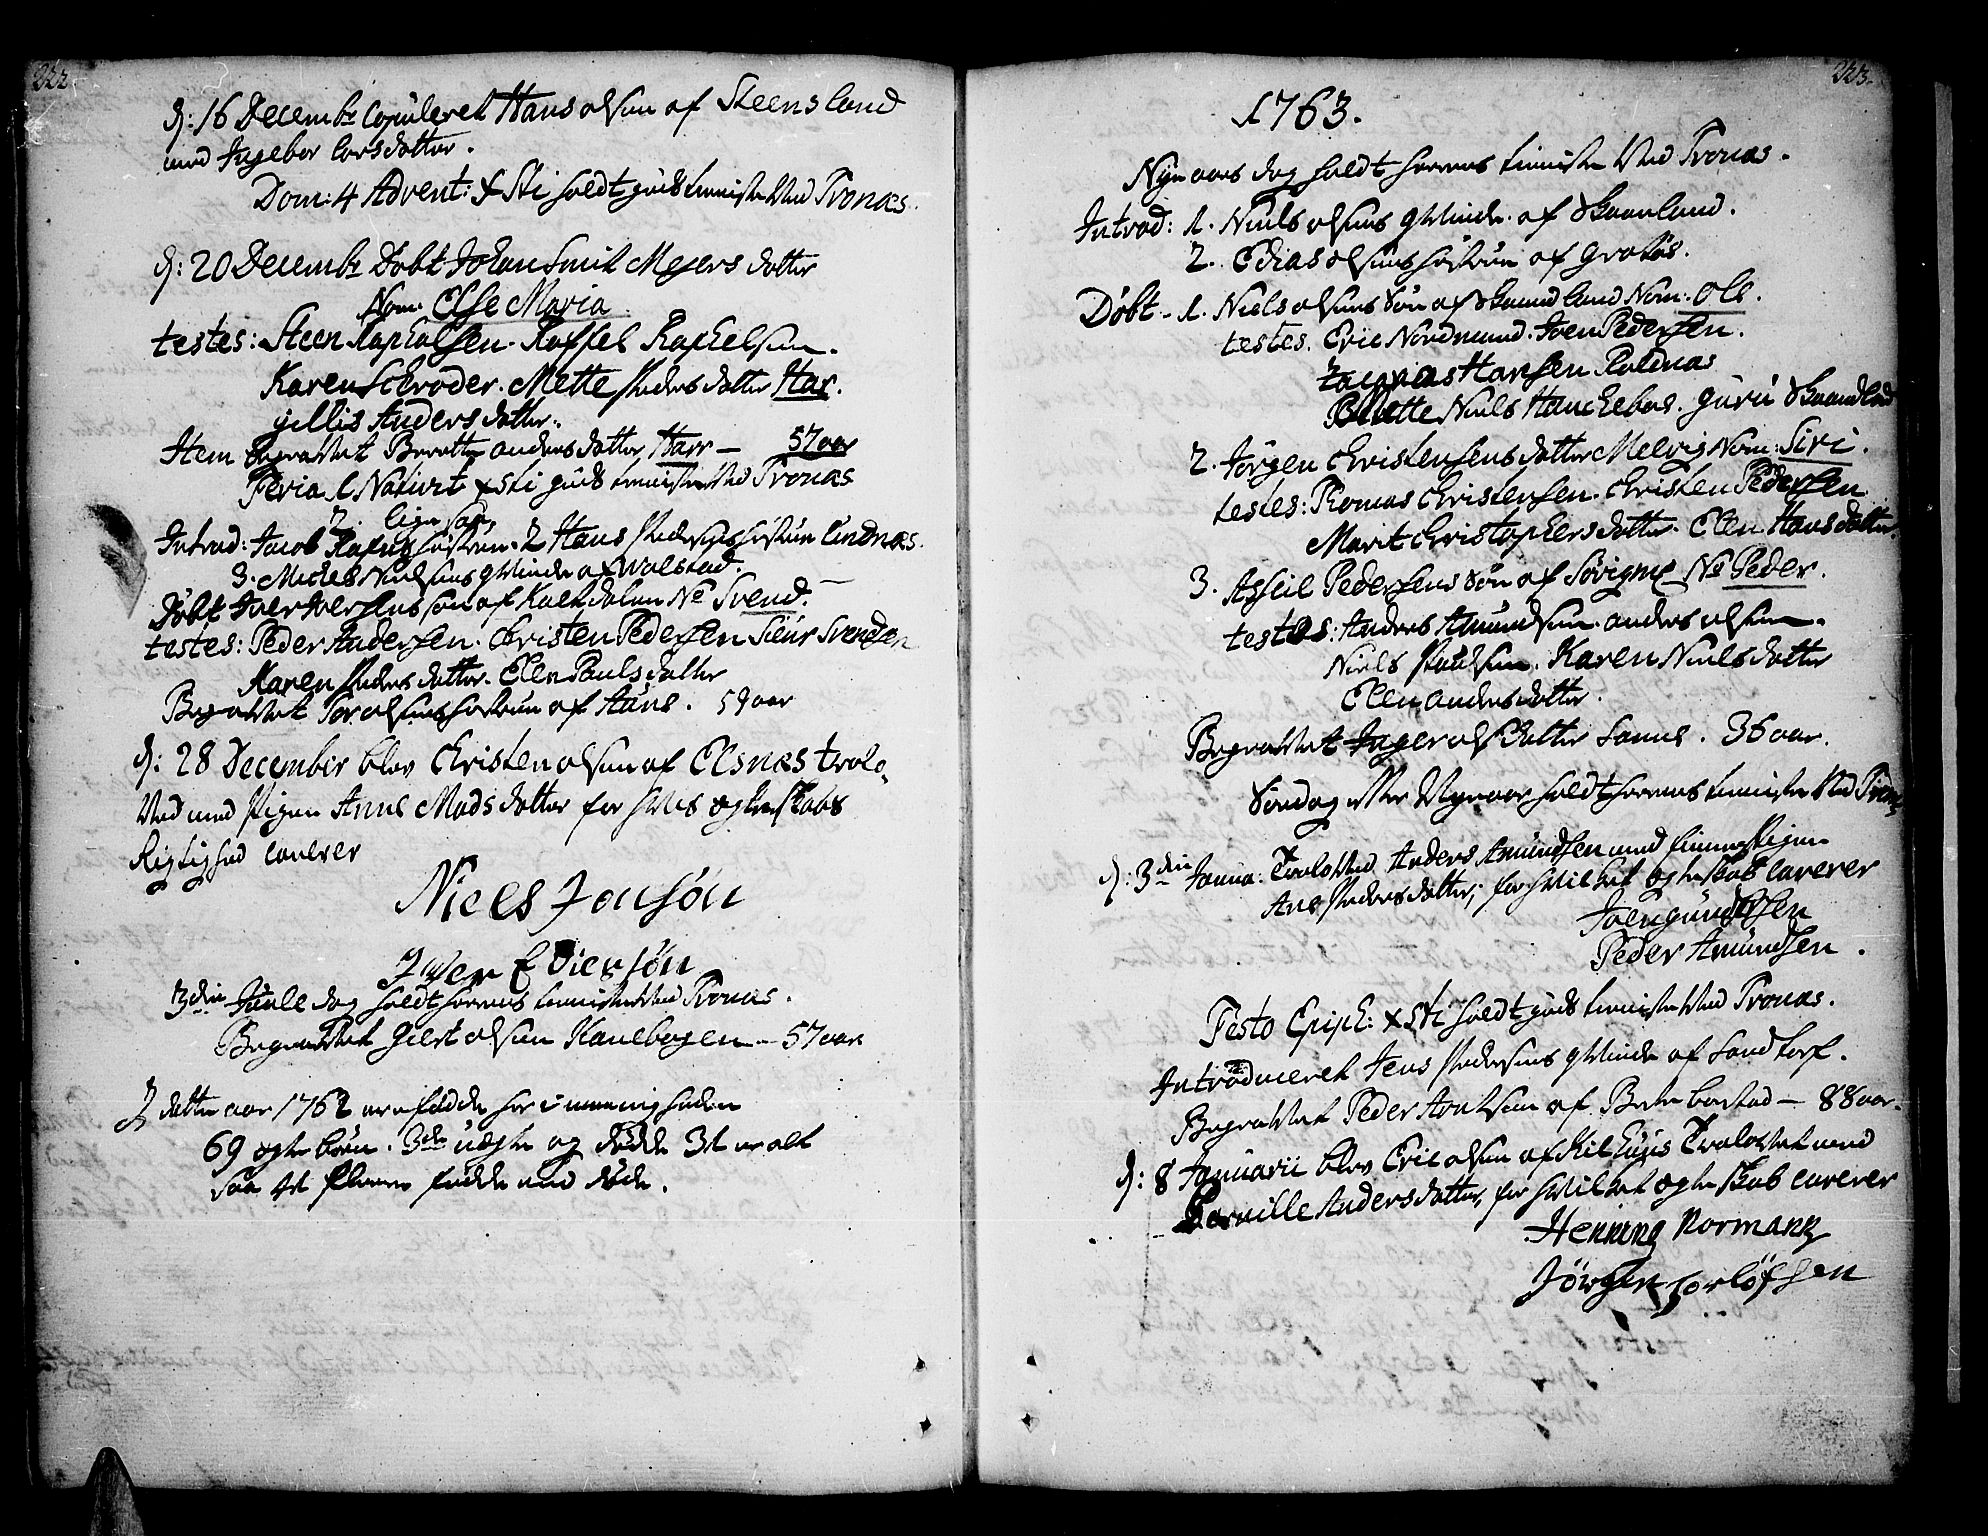 222
d: 16 Decembr Copuleret Hans olsen af Steensland
med Ingebor Larsdatter.
Dom: 4 Advent: Xsti holdt guds tienniste ved Tronæs.
d: 20 Decembr Døbt Johan Smit Meyers datter
Nom. Else Maria.
testes: Steen Raphalsen. Raffel Rafhelsen.
Karen Schroder. Mette Peders datter Har.
gillis Anders datter.
Hem begravet Berette anders datter Harr — 57 aar
Feria 1 Nativit Xsti guds tienniste ved Tronæs
Introd: Jacob hustrue. 2 Hans Pedersens hustrue Lindnæs.
3. Michel Nielsens qvinde af Wolstad.
Døbt Iver Iversens søn af Kalkdalen Ne Svend.
testes: Peder Andersen. Christen Pedersen Siur Svendsen
Karen Peders datter. Elen Pauls datter
Begravet Tor olsens hustrue af Aune. 59 aar
d: 28 December blev Christen olsen af Elsnæs trolo-
ved med Pigen Anne Mads datter for hves ægteskabs
Rigtighed caverer
Niels Jonsøn
Iver Eviersøn
3die Juule dag holdt herrens tienniste ved Tronæs.
Begravet Giert olsen Kanebogen — 57 aar
I dette aar 1762 ere fødde her i menigheden
69 ægte børn. 3de uægte og døde 31 er alt
saa det fleere fødde end døde.
223.
1763.
Nye aars dag holdt herrens tienniste ved Tronæs.
Introd: 1. Niels olsens qvinde af Skaanland.
2. Edias olsens hustrue af Grotøs.
Døbt. 1. Niels olsens søn af Skaanland Nom: Ole.
testes. Eric Nordmand. Joen Pedersen.
Zacarias Hansen Roldnæs
Niels Hanchebas. Guru Skaandland
2. Jørgen Christensens datter Melvig Nom: Siri.
testes: Thomas Christensen. Christen Pedersen
Marit Christophers datter. Elen Hans datter.
3. Assiil Pedersens søn af Sørigme Ne Peder.
testes: Anders Amundsen. anders olsen.
Niels Paulsen. Karen Niels datter
Elen anders datter.
Begravet Inger olsdatter Sanne. 36 aar.
Søndag efter Nyeaar holdt herrens tienniste ved Tronæs
d: 3die Janua: Trolovet Anders Amundsen med Pigen
Ane Peders datter; for hvilket ægteskab caverer
Joen gundersen
Peder Amundsen.
Festo Epiph: Xsti holdt guds tienniste ved Tronæs.
Introduceret Jens Pedersens qvinde af Sandtorf.
Begravet Peder Arntsen af Breebostad — 88 aar.
d: 8 Januarii blev Eric olsen af Kilhuus Trolovet med
Pernille Anders datter, for hvilket ægteskab caverer
Henning Normann
Jørgen Torløfsen